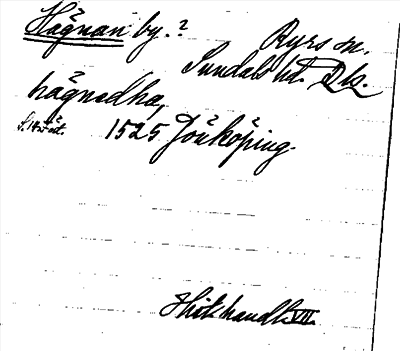 Hägnan by.?
Ryrs sn.
Sundals hd. Dlz.
hägnedha,
1525 Jönköping.
Hist handl. VII.